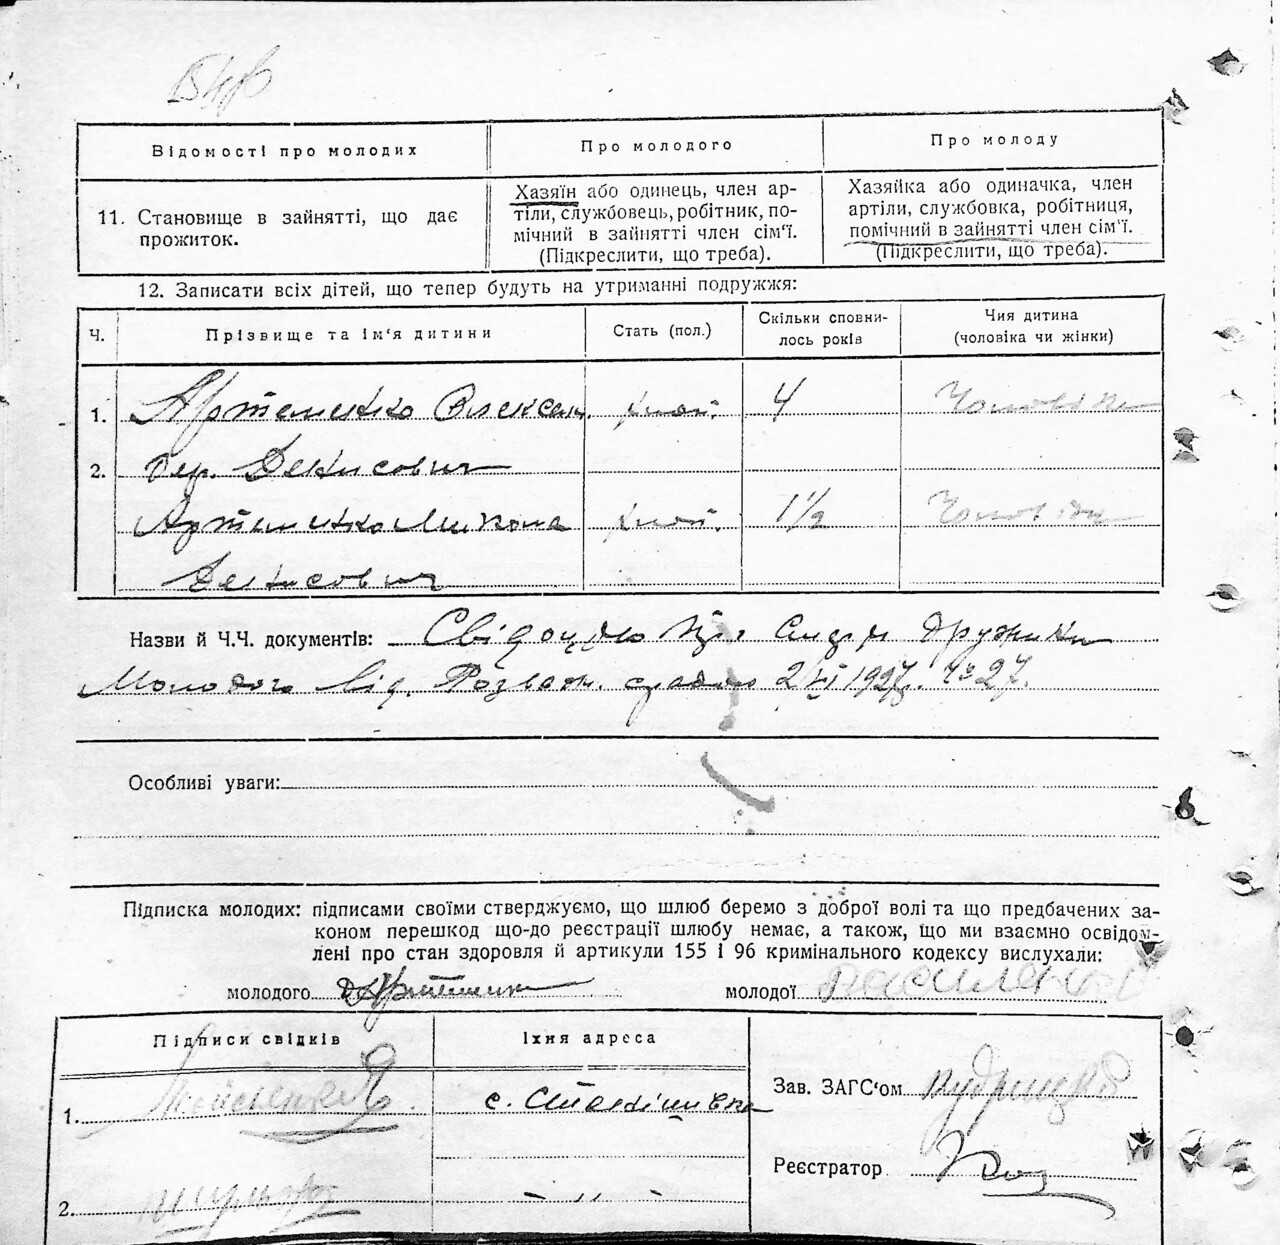 Відомості про молодих
Про молодого
Про молоду
11. Становище в зайнятті, що дає
прожиток.
Хазяїн або одинець, член ар-
тіли, службовець, робітник, по-
мічний в зайнятті член сім'ї.
(Підкреслити, що треба).
Хазяйка або одиначка, член
артіли, службовка, робітниця,
помічний в зайнятті член сім'ї.
(Підкреслити, що треба).
12. Записати всіх дітей, що тепер будуть на утриманні подружжя:
Ч.
Прізвище та ім'я дитини
Стать (пол.)
Скільки сповни-
лось років
Чия дитина
(чоловіка чи жінки)
1. Артеменко Олексан 4 Чоловіка
2. дер. Денисович
Артеменко Микола 1½ Чоловіка
Денисович
Назви й Ч.Ч. документів: Свідоцтво про смерть дружини
Молодого від. Розваж. 2/VI 1927 р. № 27.
Особливі уваги:
Підписка молодих: підписами своїми стверджуємо, що шлюб беремо з доброї волі та що предбачених за-
коном перешкод що-до реєстрації шлюбу немає, а також, що ми взаємно освідом-
лені про стан здоровля й артикули 155 і 96 кримінального кодексу вислухали:
молодого Д Артеменко молодої
Підписи свідків
Їхня адреса
1. с.
2. - „ -
Зав. ЗАГС'ом
Реєстратор